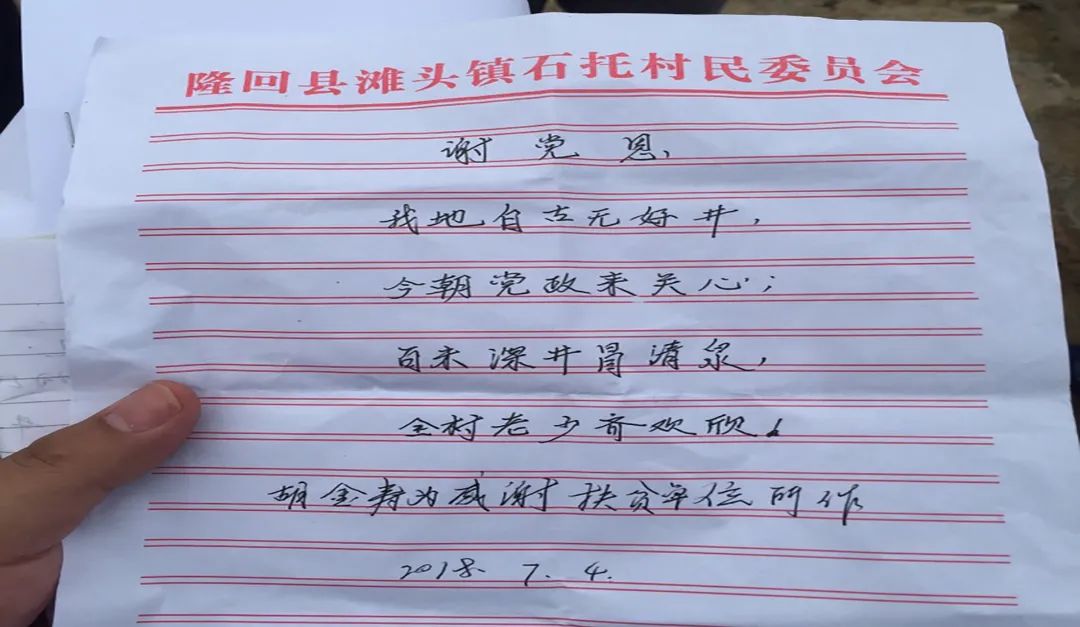 隆回县滩头镇石托村民委员会
谢党恩
我地自古无好井,
今朝党政来关心;
百米深井冒清泉,
全村老少齐欢欣。
胡金寿为感谢扶贫单位所作
2018.7.4.